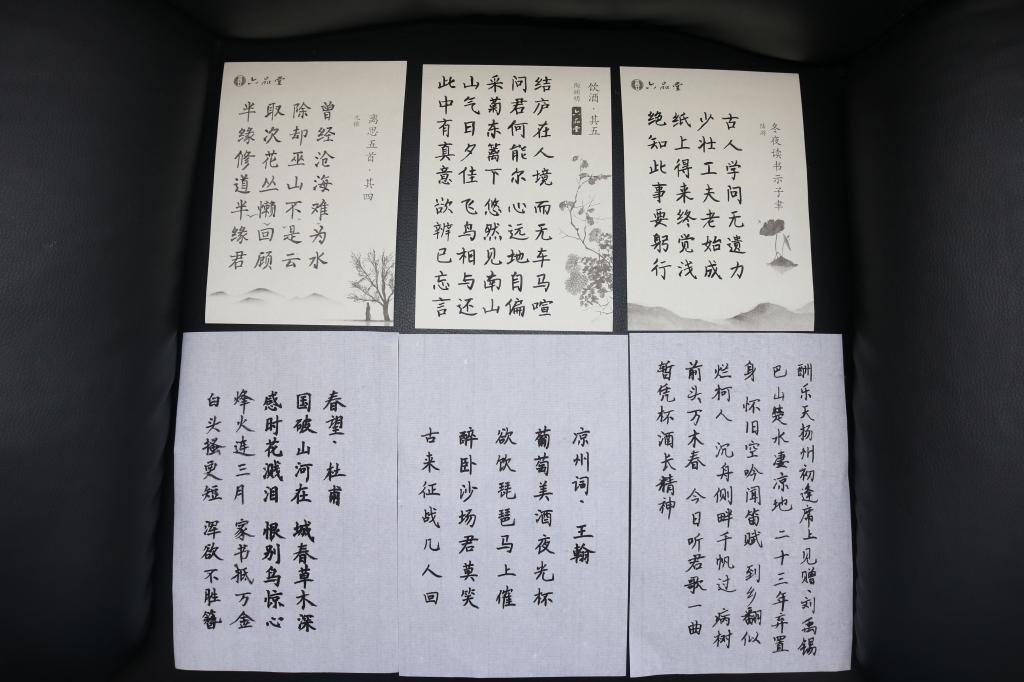 六品堂
离思五首·其四
元稹
曾经沧海难为水
除却巫山不是云
取次花丛懒回顾
半缘修道半缘君
饮酒·其五
陶渊明
六品堂
结庐在人境 而无车马喧
问君何能尔 心远地自偏
采菊东篱下 悠然见南山
山气日夕佳 飞鸟相与还
此中有真意 欲辨已忘言
六品堂
冬夜读书示子聿
陆游
古人学问无遗力
少壮工夫老始成
纸上得来终觉浅
绝知此事要躬行
春望·杜甫
国破山河在 城春草木深
感时花溅泪 恨别鸟惊心
烽火连三月 家书抵万金
白头搔更短 浑欲不胜簪
凉州词·王翰
葡萄美酒夜光杯
欲饮琵琶马上催
醉卧沙场君莫笑
古来征战几人回
酬乐天扬州初逢席上见赠·刘禹锡
巴山楚水凄凉地 二十三年弃置
身 怀旧空吟闻笛赋 到乡翻似
烂柯人 沉舟侧畔千帆过 病树
前头万木春 今日听君歌一曲
暂凭杯酒长精神